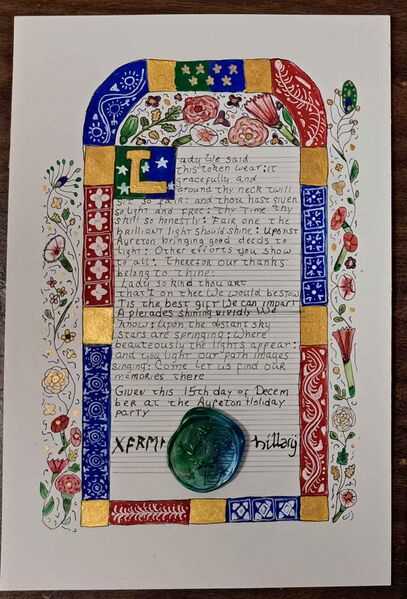 Lady We said
this token wear: it
gracefully and
around thy neck twill
sit so fair: and thou hast given
so light and free: thy time thy
skill so honestly: Fair one the
brilliant light should shine: Upon st
Ayreton bringing good deeds to
light: Other efforts you show
to all: Thereon our thanks
belong to thine:
Lady so kind thou art
that on thee We would bestow
Tis the best gift We can impart
A pleiades shining vividly We
know: Upon the distant sky
stars are springing: Where
beauteously the lights appear:
and you light our path images
singing: Come let us find our
memories there
Given this 15th day of Decem
ber at the Ayreton Holiday
party
Hillary